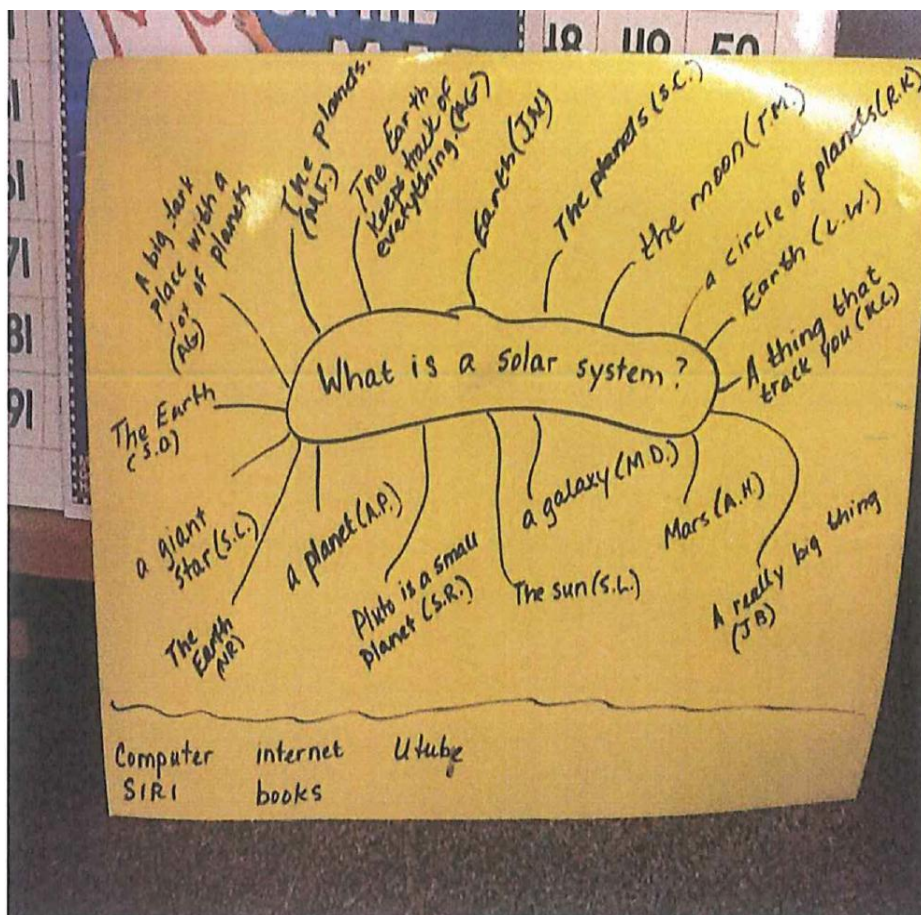 ON THE
MAP
48 49 50
51
61
71
81
91
A big dark
place with a
lot of planets
(AG)
The planets.
(M.F.)
The Earth
keeps track of
everything. (AG)
Earth (JN)
The planets (S.C.)
the moon (T.M.)
a circle of planets (R.K)
Earth (L.W.)
A thing that
track you (K.C.)
What is a solar system?
The Earth
(S.O)
a giant
star (S.C.)
The
Earth
(NR)
a planet (A.P.)
Pluto is a small
planet (S.R.)
The sun (S.L.)
a galaxy (M.D.)
Mars (A.H.)
A really big thing
(JB)
Computer internet Utube
SIRI books